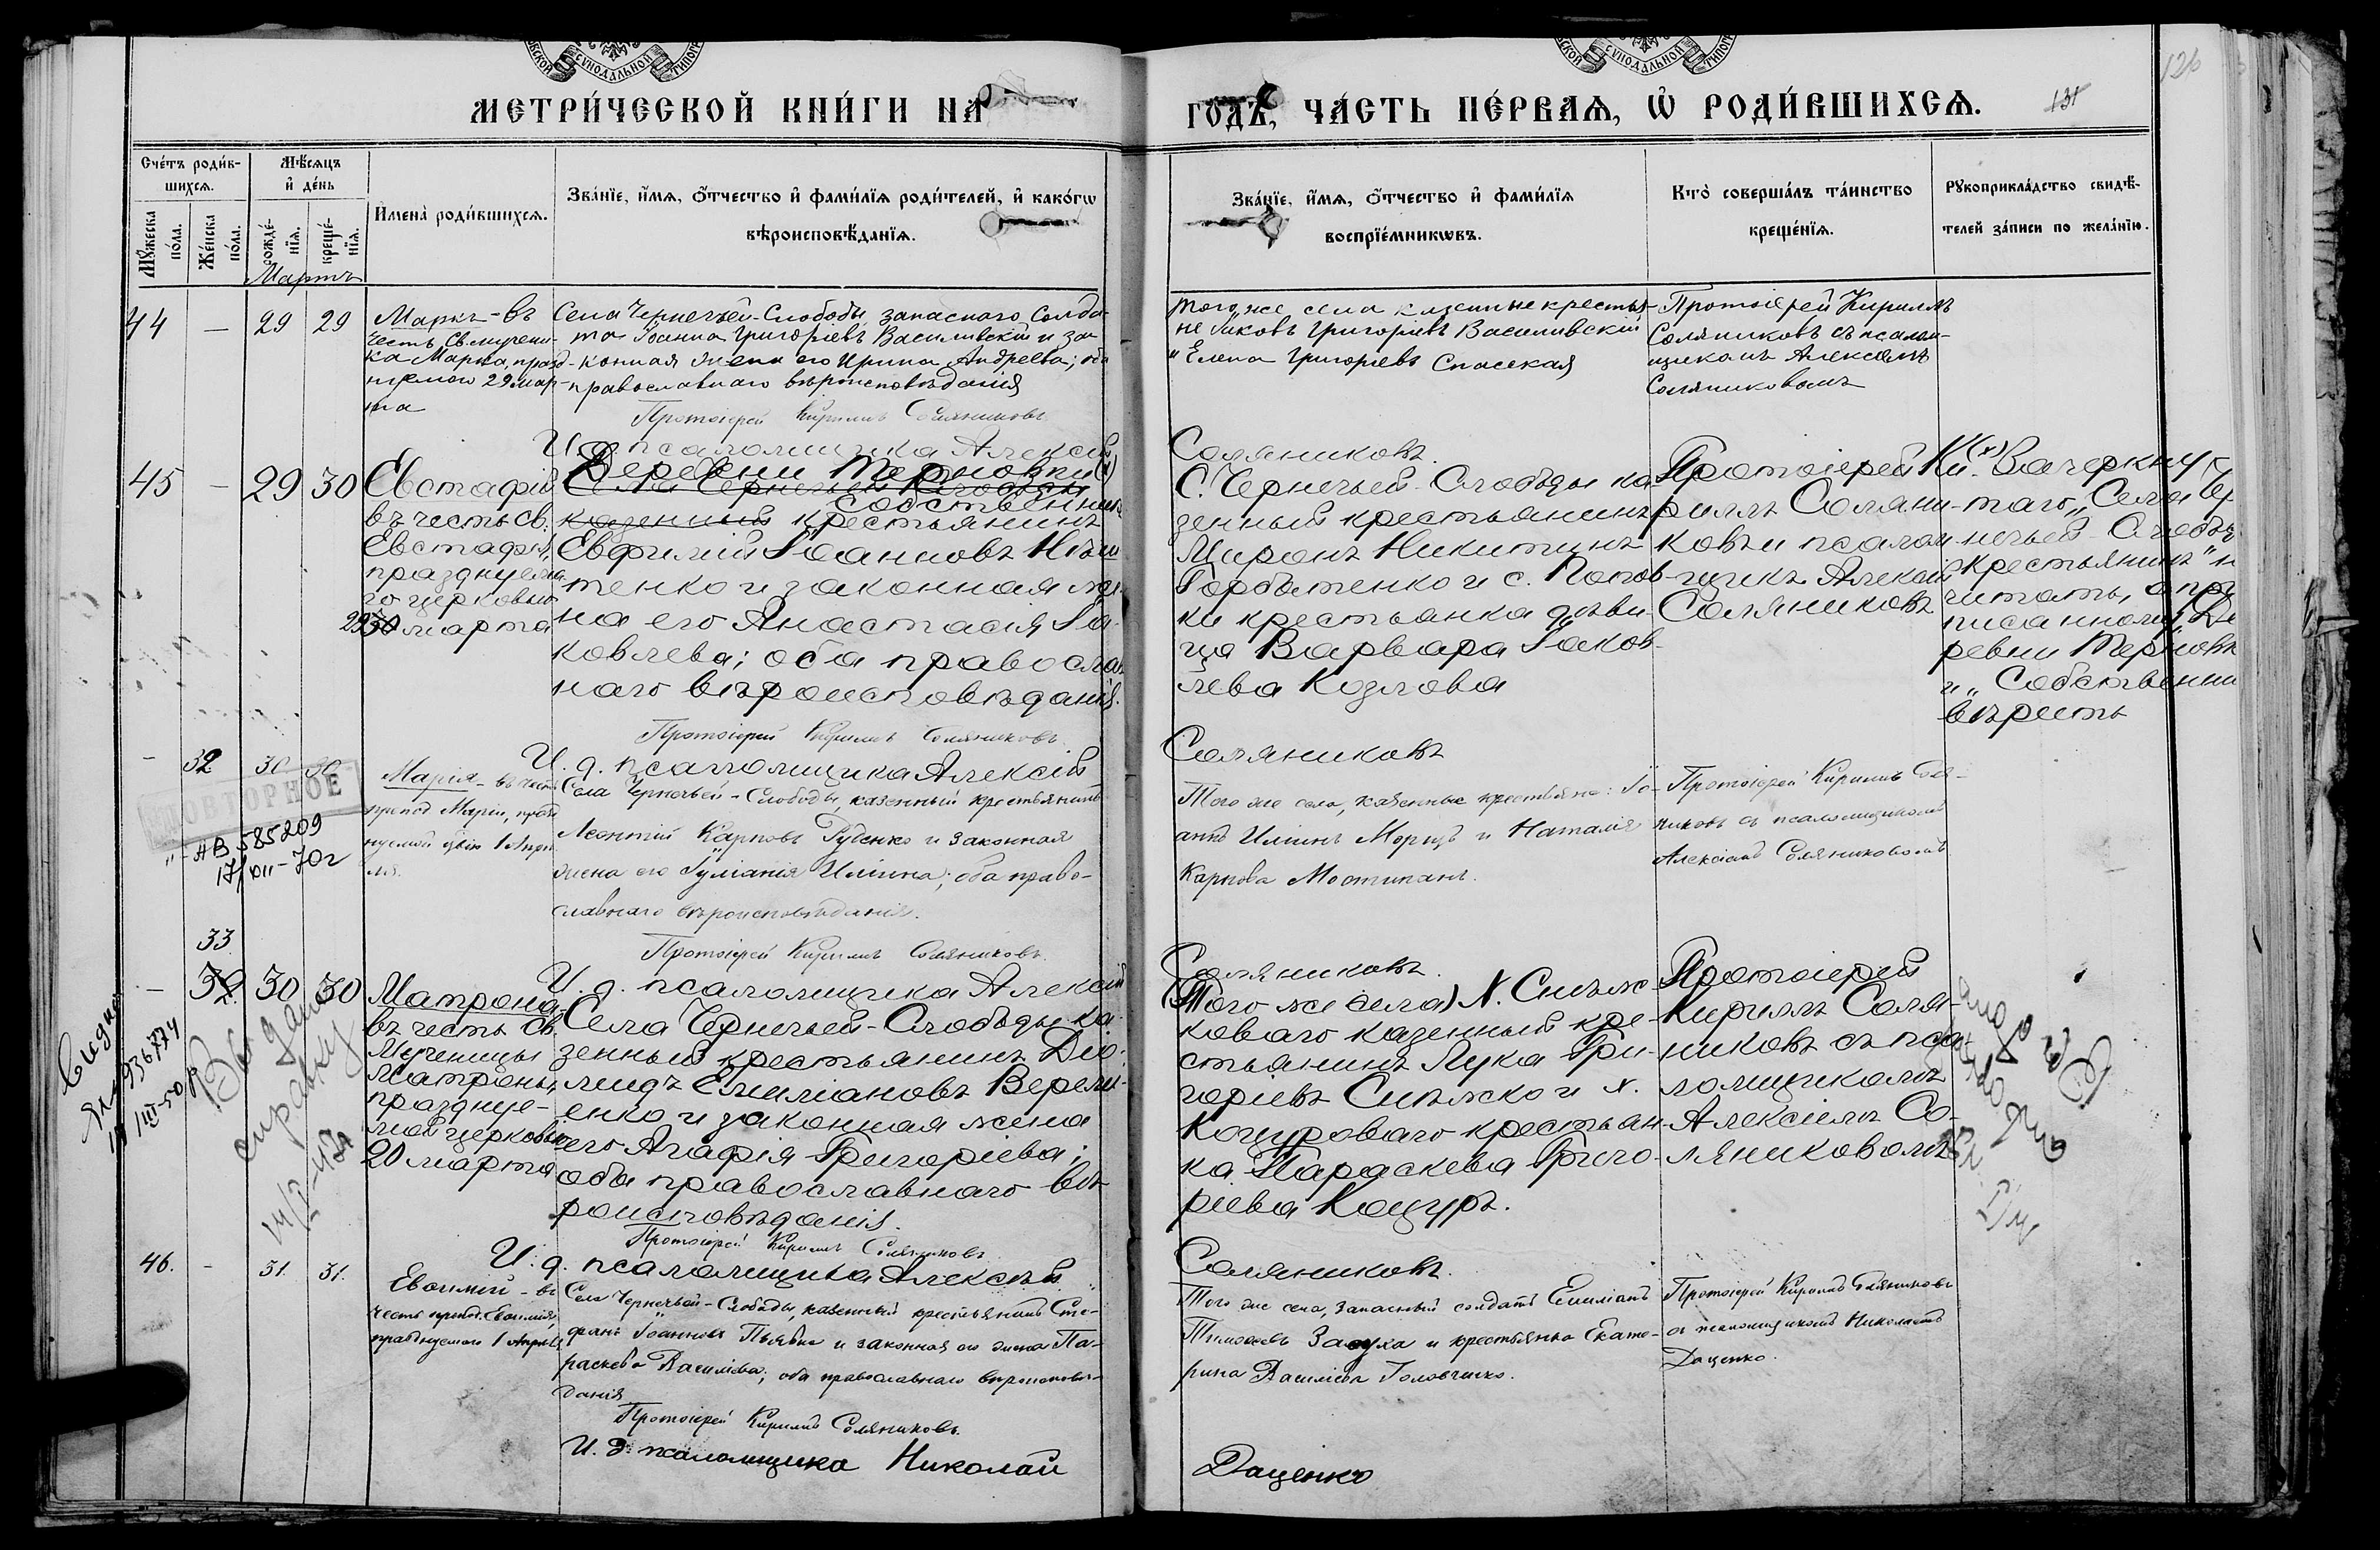 СѴНОДАЛЬНОЙ
СѴНОДАЛЬНОЙ
МЕТРИ́ЧЕСКОЙ КНИ́ГИ НА
ГОДЪ, ЧА́СТЬ ПЕ́РВАѦ, Ѡ҆ РОДИ́ВШИХСѦ.
131
126
Сче́тъ роди́в-
шихсѧ.
Мѣ́сѧцъ
и҆ де́нь
Мꙋ́жеска
по́ла.
Же́нска
по́ла.
рожде́-
нїѧ.
креще́-
нїѧ.
Имена̀ роди́вшихсѧ.
Зва́нїе, и҆́мѧ, ѻ҆́тчество и҆ фами́лїѧ роди́телей, и҆ како́гѡ
вѣроисповѣ́данїѧ.
Зва́нїе, и҆́мѧ, ѻ҆́тчество и҆ фами́лїѧ
воспрїе́мникѡвъ.
Кто̀ соверша́лъ та́инство
креще́нїѧ.
Рꙋкоприкла́дство свидѣ́-
телей за́писи по жела́нїю.
Мартъ
44 — 29 29
Маркъ - въ
честь Св. мучени-
ка Марка, празд-
нуемаго 29 мар-
та
Села Чернечьей-Слободы запаснаго солда-
та Іоанна Григоріевъ Василивскій и за-
конная жена его Ирина Андреева; оба
православнаго вѣроисповѣданія
Протоіерей Кириллъ Соляниковъ
И. д. псаломщика Алексій
Того же села казенные крестья-
не Іяковъ Григоріевъ Василивскій
и Елена Григоріевъ Спасская
Соляниковъ.
Протоіерей Кириллъ
Соляниковъ съ псалом-
щикомъ Алексіемъ
Соляниковымъ
45 — 29 30
Евстафій
въ честь св.
Евстафія,
празднуема-
го церковью
29 30 марта
Деревни Терновки (х)
Села Чернечьей Слободы
собственникъ
казенный крестьянинъ
Евфимій Іоанновъ Нѣш-
тенко и законная же-
на его Анастасія Іа-
ковлева; оба православ-
наго вѣроисповѣданія.
Протоіерей Кириллъ Соляниковъ
И. д. псаломщика Алексій
С. Чернечьей-Слободы ка-
зенный крестьянинъ
Миронъ Никитинъ
Горбатенко и с. Попов-
ки крестьянка дѣви-
ца Варвара Іаков-
лева Козлова
Соляниковъ
Протоіерей Ки-
риллъ Соляни-
ковъ и псалом-
щикъ Алексій
Соляниковъ
(х) Зачеркну
таго „Села Чер
нечьей Слобъд
крестьянинъ" н
читать, а при
писанному „Де
ревни Терновк
и „Собственни
вѣрить
— 32 30 30
ПОВТОРНОЕ
"-АВ 585209
17/XII-70г
Марія - въ честь
препод. Маріи, празд-
нуемой цвію 1 Апрѣ-
ля.
Села Чернечьей-Слободы, казенный крестьянинъ
Леонтій Карповъ Руденко и законная
жена его Іуліанія Иліина; оба право-
славнаго вѣроисповѣданія.
Протоіерей Кириллъ Соляниковъ.
И. д. псаломщика Алексій
Того же села, казенные крестьяне: Іо-
аннъ Иліинъ Морицъ и Наталія
Карпова Мостипанъ.
Соляниковъ.
Протоіерей Кириллъ Соля-
никовъ съ псаломщикомъ
Алексіемъ Соляниковымъ
33
— 32 30 30
936774
Выдана
справку
Матрона
въ честь св.
Мученицы
Матроны,
празднуе-
мой церковью
20 марта
Села Чернечьей-Слободы ка-
зенный крестьянинъ Дио-
мидъ Емиліановъ Вереми-
енко и законная жена
его Агафія Григоріева;
оба православнаго вѣ-
роисповѣданія.
Протоіерей Кириллъ Соляниковъ
И. д. псаломщика Алексѣй
(Того же села) х. Снѣж-
коваго казенный кре-
стьянинъ Лука Гри-
горіевъ Снѣжко и х.
Коцуроваго крестьян-
ка Параскева Григо-
ріева Коцуръ.
Соляниковъ.
Протоіерей
Кириллъ Соля-
никовъ съ пса-
ломщикомъ
Алексіемъ Со-
ляниковымъ
46. — 31. 31.
Евѳимій - въ
честь препод. Евѳимія,
празднуемаго 1 Апрѣля
Села Чернечьей-Слободы, казенный крестьянинъ Сте-
фанъ Іоанновъ Пьявка и законная его жена Па-
раскева Василіева; оба православнаго вѣроисповѣ-
данія
Протоіерей Кириллъ Соляниковъ.
И. д. псаломщика Николай
Того же села, запасный солдатъ Емиліанъ
Тимоѳеевъ Заруха и крестьянка Екате-
рина Василіева Головченко.
Даценко
Протоіерей Кириллъ Соляниковъ
съ псаломщикомъ Николаемъ
Даценко.